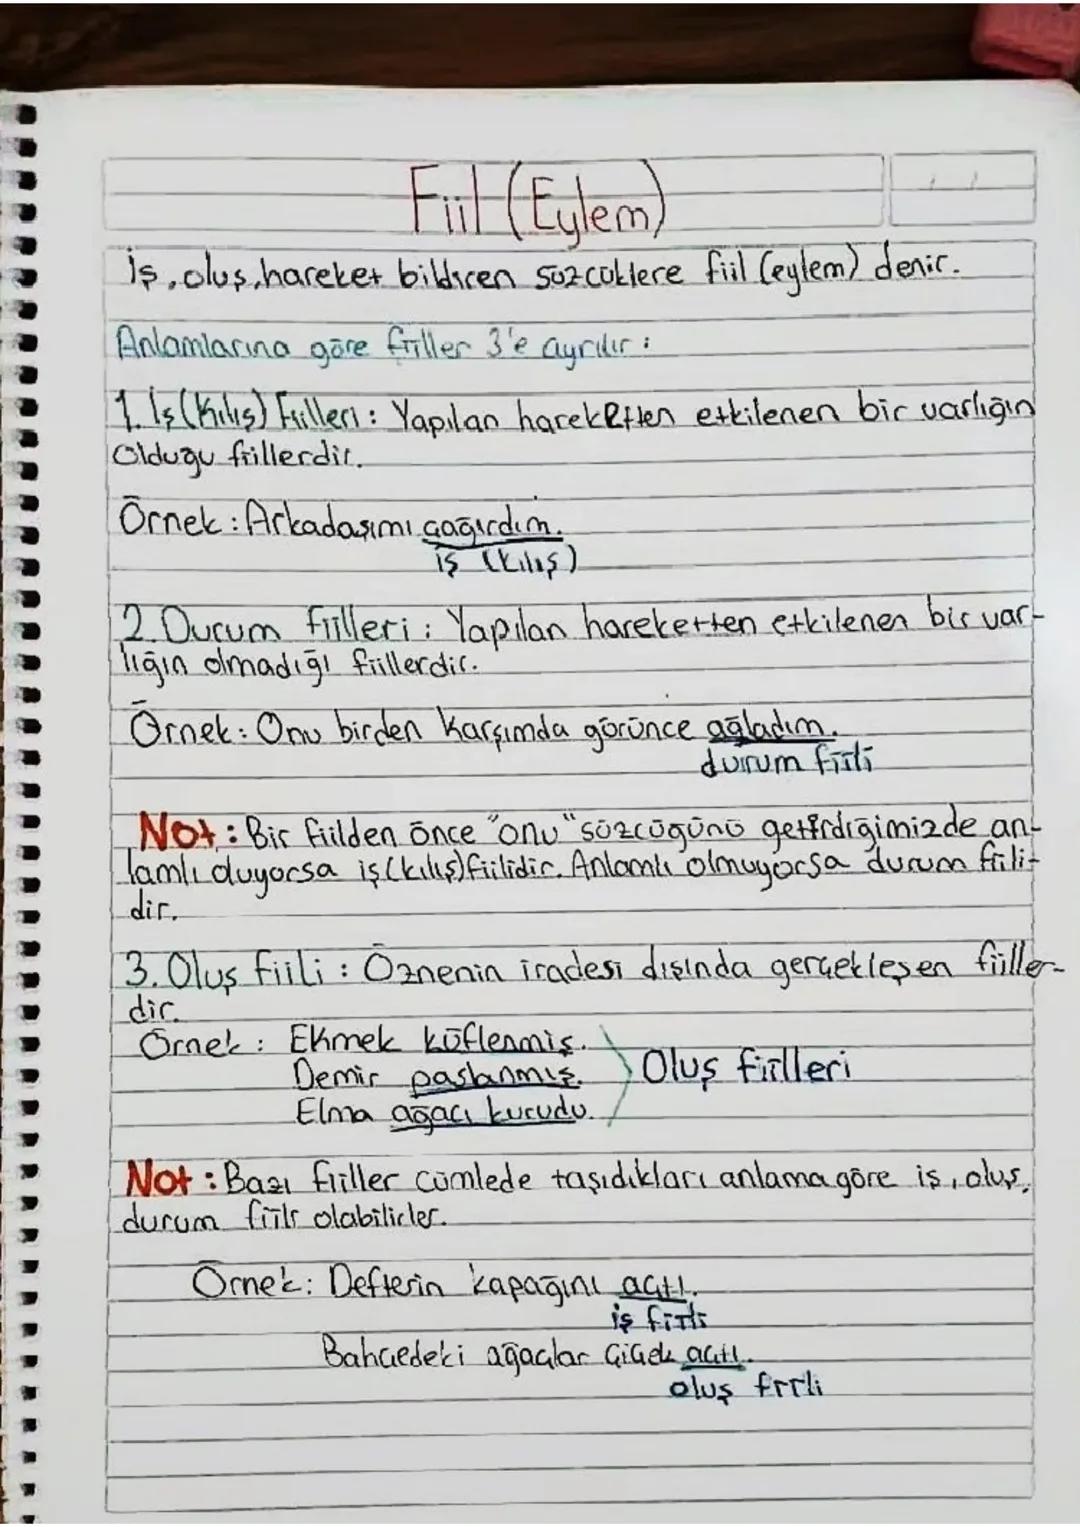 Fiil (Eylem)
İş, oluş, hareket bildiren sözcüklere fiil (eylem) denir.
Anlamlarına göre fiiller 3'e ayrılır :
1. İş (Kılış) Fiilleri : Yapılan hareketten etkilenen bir varlığın
olduğu fiillerdir.
Örnek : Arkadaşımı çağırdım.
iş (kılış)
2. Durum fiilleri : Yapılan hareketten etkilenen bir var-
lığın olmadığı fiillerdir.
Örnek : Onu birden karşımda görünce ağladım.
durum fiili
Not : Bir fiilden önce "onu" sözcüğünü getirdiğimizde an-
lamlı oluyorsa iş (kılış) fiilidir. Anlamlı olmuyorsa durum fiili-
dir.
3. Oluş Fiili : Öznenin iradesi dışında gerçekleşen fiiller-
dir.
Örnek : Ekmek küflenmiş.
Demir paslanmış. Oluş fiilleri
Elma ağacı kurudu.
Not : Bazı fiiller cümlede taşıdıkları anlama göre iş, oluş,
durum fiili olabilirler.
Örnek : Defterin kapağını açtı.
iş fiili
Bahçedeki ağaçlar çiçek açtı.
oluş fiili